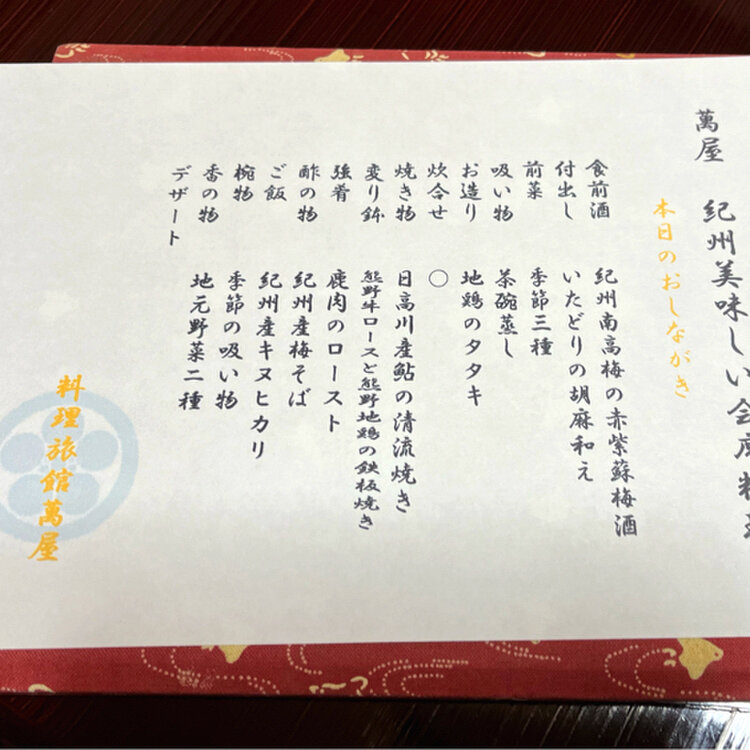 萬屋 紀州美味しい会席料理
本日のおしながき
食前酒 紀州南高梅の赤紫蘇梅酒
付出し いたどりの胡麻和え
前菜 季節三種
吸い物 茶碗蒸し
お造り 地鶏のタタキ
炊合せ 〇
焼き物 日高川産鮎の清流焼き
変り鉢 熊野牛ロースと熊野地鶏の鉄板焼き
強肴 鹿肉のロースト
酢の物 紀州産梅そば
ご飯 紀州産キヌヒカリ
椀物 季節の吸い物
香の物 地元野菜二種
デザート
料理旅館萬屋